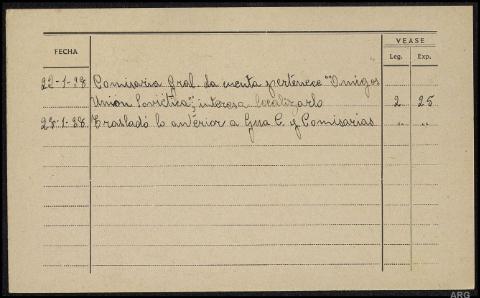 VEASE
FECHA
Leg. Exp.
22-1-38 Comisaria Gral. da cuenta pertenece "Amigos
Unión Sovietica", interesa localizarlo 2 25
28-1-38 Trasladó lo anterior a Gssa C. y Comisarias " "
ARG